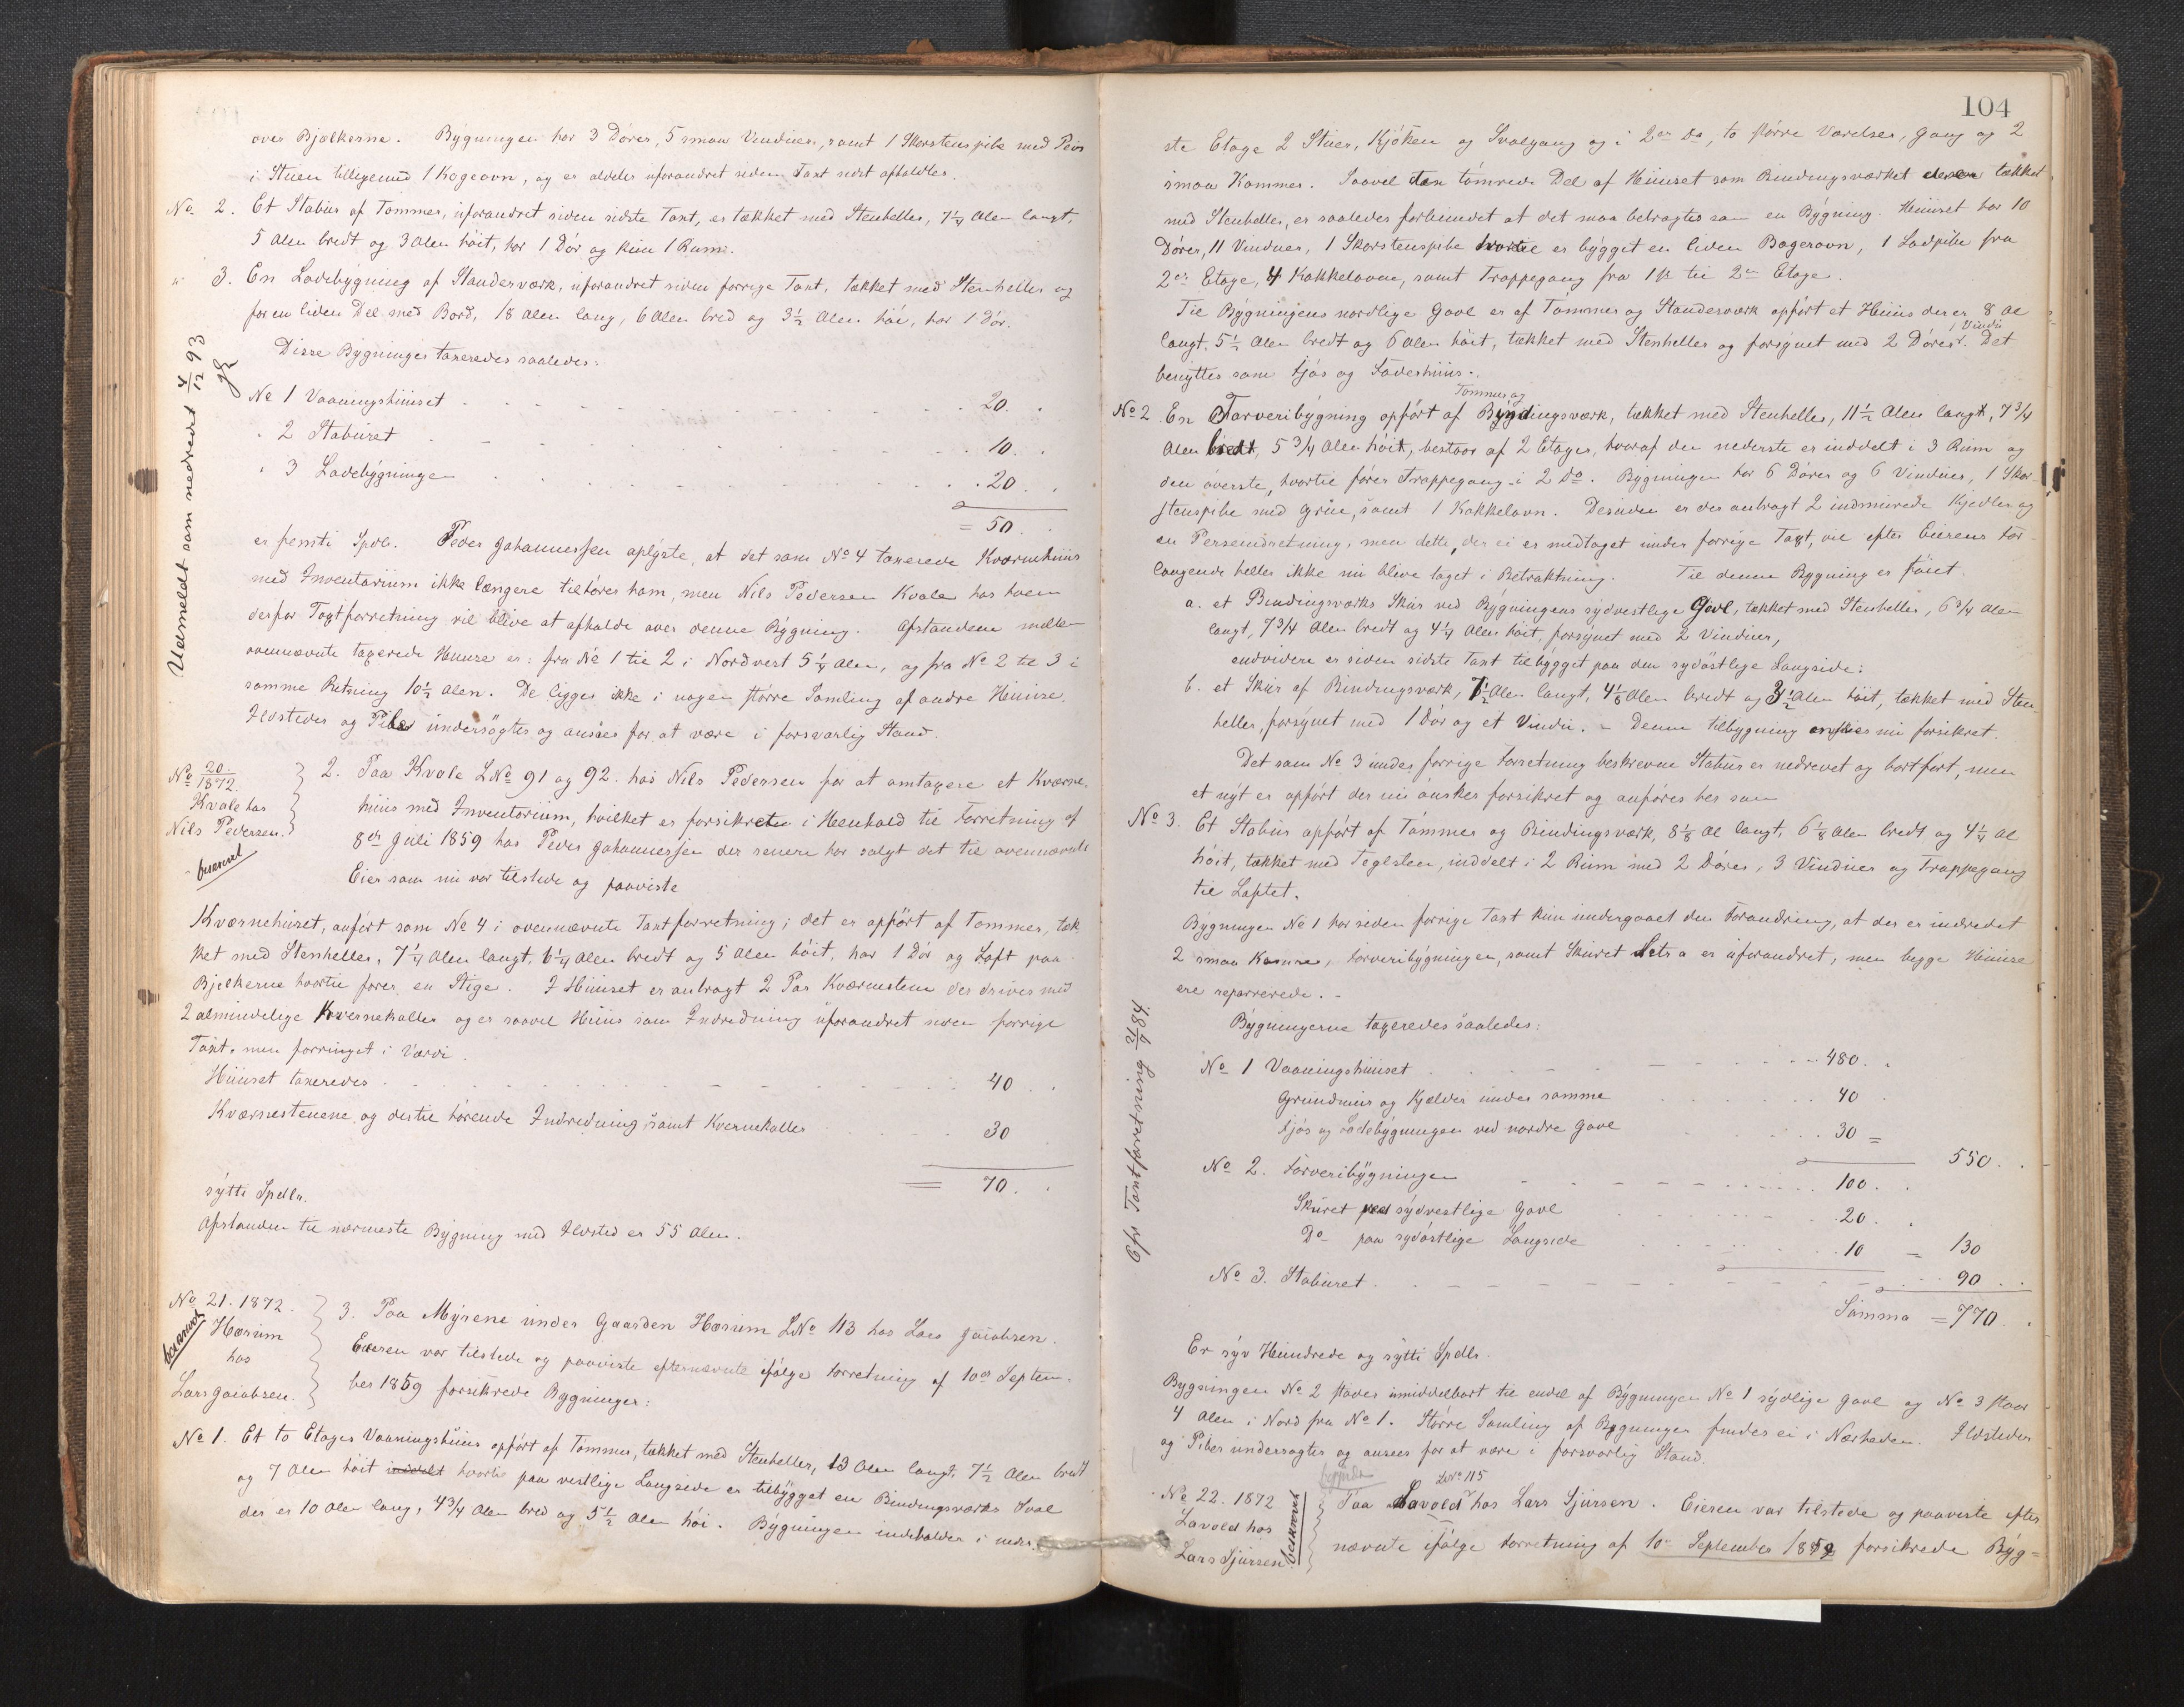 over Bjælkerne. Bygningen har 3 Dörer, 5 smaa Vinduer, samt 1 Skorstenspibe med Peis
i Stuen tilligemed 1 Kogeovn, og er aldeles uforandret siden Taxt sidst afholdtes.
No 2. Et Stabur af Tømmer, uforandret siden sidste Taxt, er tækket med Stenheller, 7 1/4 Alen langt,
5 Alen bredt og 3 Alen höit, har 1 Dör og kun 1 Rum.
" 3. En Ladebygning af Standerværk, uforandret siden forrige Taxt, tækket med Stenheller og
for en liden Del med Bord, 18 Alen lang, 6 Alen bred og 3 1/2 Alen höi, har 1 Dör.
Disse Bygninger taxeredes saaledes:
No 1 Vaaningshuset 20.
" 2 Staburet 10.
" 3 Ladebygningen 20.
= 50.
Udmeldt som nedrevet 4/12 93
er femti Spdlr. Peder Johannessen oplyste, at det som No 4 taxerede Kværnehuus
med Inventarium ikke længere tilhörer ham, men Nils Pedersen Kvale hos hvem
derfor Taxtforretning vil blive at afholde over denne Bygning. Afstanden mellem
ovennævnte taxerede Huuse er: fra No 1 til 2 i Nordvest 5 1/4 Alen, og fra No 2 til 3 i
samme Retning 10 1/2 Alen. De ligger ikke i nogen större Samling af andre Huuse.
Ildsteder og Piber undersögtes og ansaaes for at være i forsvarlig Stand.
No 20. 1872. Kvale hos Nils Pedersen.
beskrevet
2. Paa Kvale LNo 91 og 92. hos Nils Pedersen for at omtaxere et Kværne-
huus med Inventarium, hvilket er forsikret i Henhold til Forretning af
8de Juli 1859 hos Peder Johannessen der senere har solgt det til ovennævnte
Eier som nu var tilstede og paaviste
Kværnehuset, anfört som No 4 i ovennævnte Taxtforretning; det er opfört af Tömmer, tæk-
ket med Stenheller, 7 1/4 Alen langt, 6 1/4 Alen bredt og 5 Alen höit, har 1 Dör og Loft paa
Bjelkerne hvortil förer en Stige. I Huuset er anbragt 2 Par Kværnestene der drives med
2 almindelige Kvernekaller og er saavel Huus som Indredning uforandret siden forrige
Taxt, men forringet i Værdi.
Huuset taxeredes 40
Kværnestenene og dertil hörende Indredning, samt Kvernekaller 30
= 70.
sytti Spdlr.
Afstanden til nærmeste Bygning med Ildsted er 55 Alen.
No 21. 1872. Hærum hos Lars Jacobsen.
beskrevet
3. Paa Myrene under Gaarden Hærum LNo 113 hos Lars Jacobsen.
Eieren var tilstede og paaviste efternævnte ifölge Forretning af 10de Septem-
ber 1859 forsikrede Bygninger:
No 1. Et to Etages Vaaningshuus opfört af Tømmer, tækket med Stenheller, 13 Alen langt, 7 1/2 Alen bredt
og 7 Alen höit hvortil paa vestlige Langside er tilbygget en Bindingsværks Sval
der er 10 Alen lang, 4 3/4 Alen bred og 5 1/2 Alen höi. Bygningen indeholder i neder-
104
ste Etage 2 Stuer, Kjöken og Svalgang og i 2den Do, to större Værelser, Gang og 2
smaa Kammer. Saavel den tömrede Del af Huuset som Bindingsværket der er tækket
med Stenheller, er saaledes forbundet at det maa betragtes som en Bygning. Huuset har 10
Dörer, 11 Vinduer, 1 Skorstenspibe hvortil er bygget en liden Bagerovn, 1 Ladpibe fra
2den Etage, 4 Kakkelovne, samt Trappegang fra 1ste til 2den Etage.
Til Bygningens nordlige Gavl er af Tömmer og Standerværk opfört et Huus der er 8 Al
langt, 5 1/2 Alen bredt og 6 Alen höit, tækket med Stenheller og forsynet med 2 Dörer 1 Vindu. Det
benyttes som Fjös og Foderhuus.
No 2. En Farveribygning opfört af Tømmer og Bindingsværk, tækket med Stenheller, 11 1/2 Alen langt, 7 3/4
Alen bredt, 5 3/4 Alen höit, bestaar af 2 Etager, hvoraf den nederste er inddelt i 3 Rum og
den överste, hvortil förer Trappegang i 2 Do. Bygningen har 6 Dörer og 6 Vinduer, 1 Skor-
stenspibe med Grue, samt 1 Kakkelovn. Desuden er der anbragt 2 indmurede Kjedler og
en Perseindretning, men dette, der ei er medtaget under forrige Taxt, vil efter Eierens For-
langende heller ikke nu blive taget i Betraktning. Til denne Bygning er föiet
a. et Bindingsværks Skur ved Bygningens sydvestlige Gavl, tækket med Stenheller, 6 3/4 Alen
langt, 7 3/4 Alen bredt og 4 1/4 Alen höit, forsynet med 2 Vinduer,
endvidere er siden sidste Taxt tilbygget paa den sydöstlige Langside:
b. et Skur af Bindingsværk, 7 1/2 Alen langt, 4 1/8 Alen bredt og 3 1/2 Alen höit, tækket med Sten-
heller, forsynet med 1 Dör og et Vindu. - Denne tilbygning önskes nu forsikret.
Det som No 3 under forrige Forretning beskrevne Stabur er nedrevet og bortfört, men
et nyt er opfört der nu önskes forsikret og anföres her som
No 3. Et Stabur opfört af Tömmer og Bindingsværk, 8 1/8 Al langt, 6 1/8 Alen bredt og 4 1/4 Al
höit, tækket med Teglsten, inddelt i 2 Rum med 2 Dörer, 3 Vinduer og Trappegang
til Loftet.
Bygningen No 1 har siden forrige Taxt kun undergaaet den Forandring, at der er indredet
2 smaa Kamre, Farveribygningen, samt Skuret Litr a er uforandret, men begge Huuse
ere reparerede. -
Bygningerne taxeredes saaledes:
No 1 Vaaningshuuset 480.
Grundmur og Kjelder under samme 40
Fjös og Ladebygningen ved nordre Gavl 30 =
550.
No 2. Farveribygningen 100.
Skuret ved sydvestlige Gavl 20.
Do paa sydöstlige Langside 10 = 130
No 3. Staburet 90
Summa = 770.
Cfr Taxtforretning 2/9 84.
Er syv Hundrede og sytti Spdlr.
Bygningen No 2 stöder umiddelbart til endel af Bygningen No 1 sydlige Gavl og No 3 staar
4 Alen i Nord fra No 1. Större Samling af Bygninger findes ei i Nærheden. Ildsteder
og Piber undersögtes og ansees for at være i forsvarlig Stand.
No 22. 1872 Lavold hos Lars Sjursen.
beskrevet
LNo 115
Paa Lavold hos Lars Sjursen. Eieren var tilstede og paaviste efter
nævnte ifölge Forretning af 10de September 1859 forsikrede Byg=